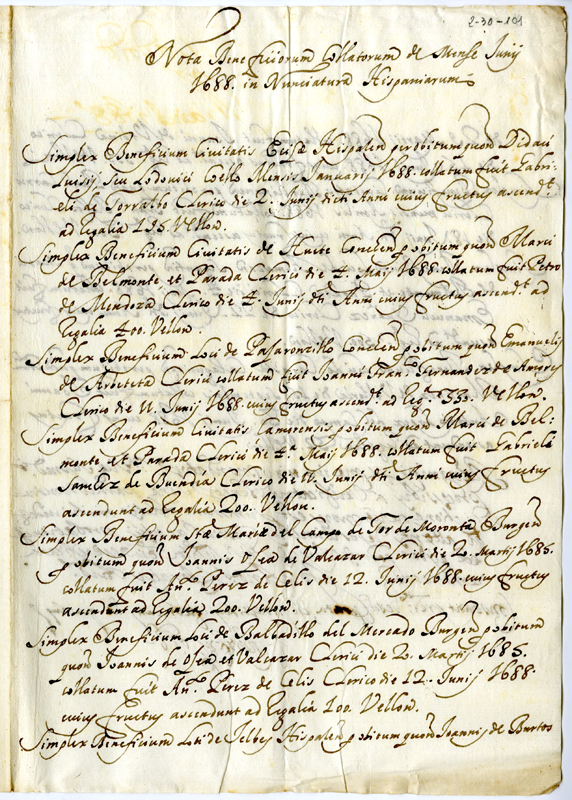 2-30-101
Nota Beneficiorum Collatorum de Mense Junij
1688. in Nunciatura Hispaniarum
Simplex Beneficium Civitatis Hispalen per obitum quon Didaci
Luisij seu Lodovici Coello Mensis Januarij 1688. collatum fuit Gabri-
eli de Torralto Clerico die 2. Junij dicti Anni cuius fructus ascend.t
ad Regalia 195. Vellon.
Simplex Beneficium Civitatis de Huete Conchen p obitum quon Marci
de Belmonte et Parada Clerici die 4. Maij 1688. collatum fuit Petro
de Mendoza Clerico die 4. Junij dti Anni cuius fructus ascend.t ad
Regalia 400. Vellon.
Simplex Beneficium Loci de Pajaronzillo Conchen p obitum quon Emanuelis
de Arbeteta Clerici collatum fuit Joanni Fran.co Fernandez de
Clerico die 11. Junij 1688. cuius fructus ascend.t ad Reg.a 330. Vellon.
Simplex Beneficium Civitatis Camorensis p obitum quon Marci de Bel-
monte et Parada Clerici die 4. Maij 1688. collatum fuit Gabrieli
Sanchez de Buendia Clerico die 11. Junij dti Anni cuius fructus
ascendunt ad Regalia 200. Vellon.
Simplex Beneficium Stæ Mariæ del Campo de Tor de Moronta Burgen
p obitum quon Joannis Ossea de Valcazar Clerici die 20. Martij 1685.
collatum fuit An.o Perez de Celis die 12. Junij 1688. cuius fructus
ascendunt ad Regalia 200. Vellon.
Simplex Beneficium Loci de Balbadillo del Mercado Burgen p obitum
quon Joannis de Ossea et Valcazar Clerici die 20. Martij 1685.
collatum fuit An.o Perez de Celis Clerico die 12. Junij 1688.
cuius fructus ascendunt ad Regalia 100. Vellon.
Simplex Beneficium Loci de Jelbes Hispalen p obitum quon Joannis de Burtos